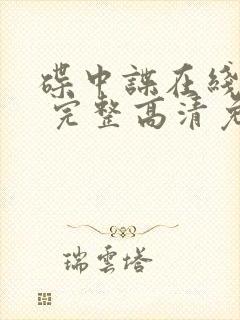 碟中諜在綫
完整高清免
瑞雲塔